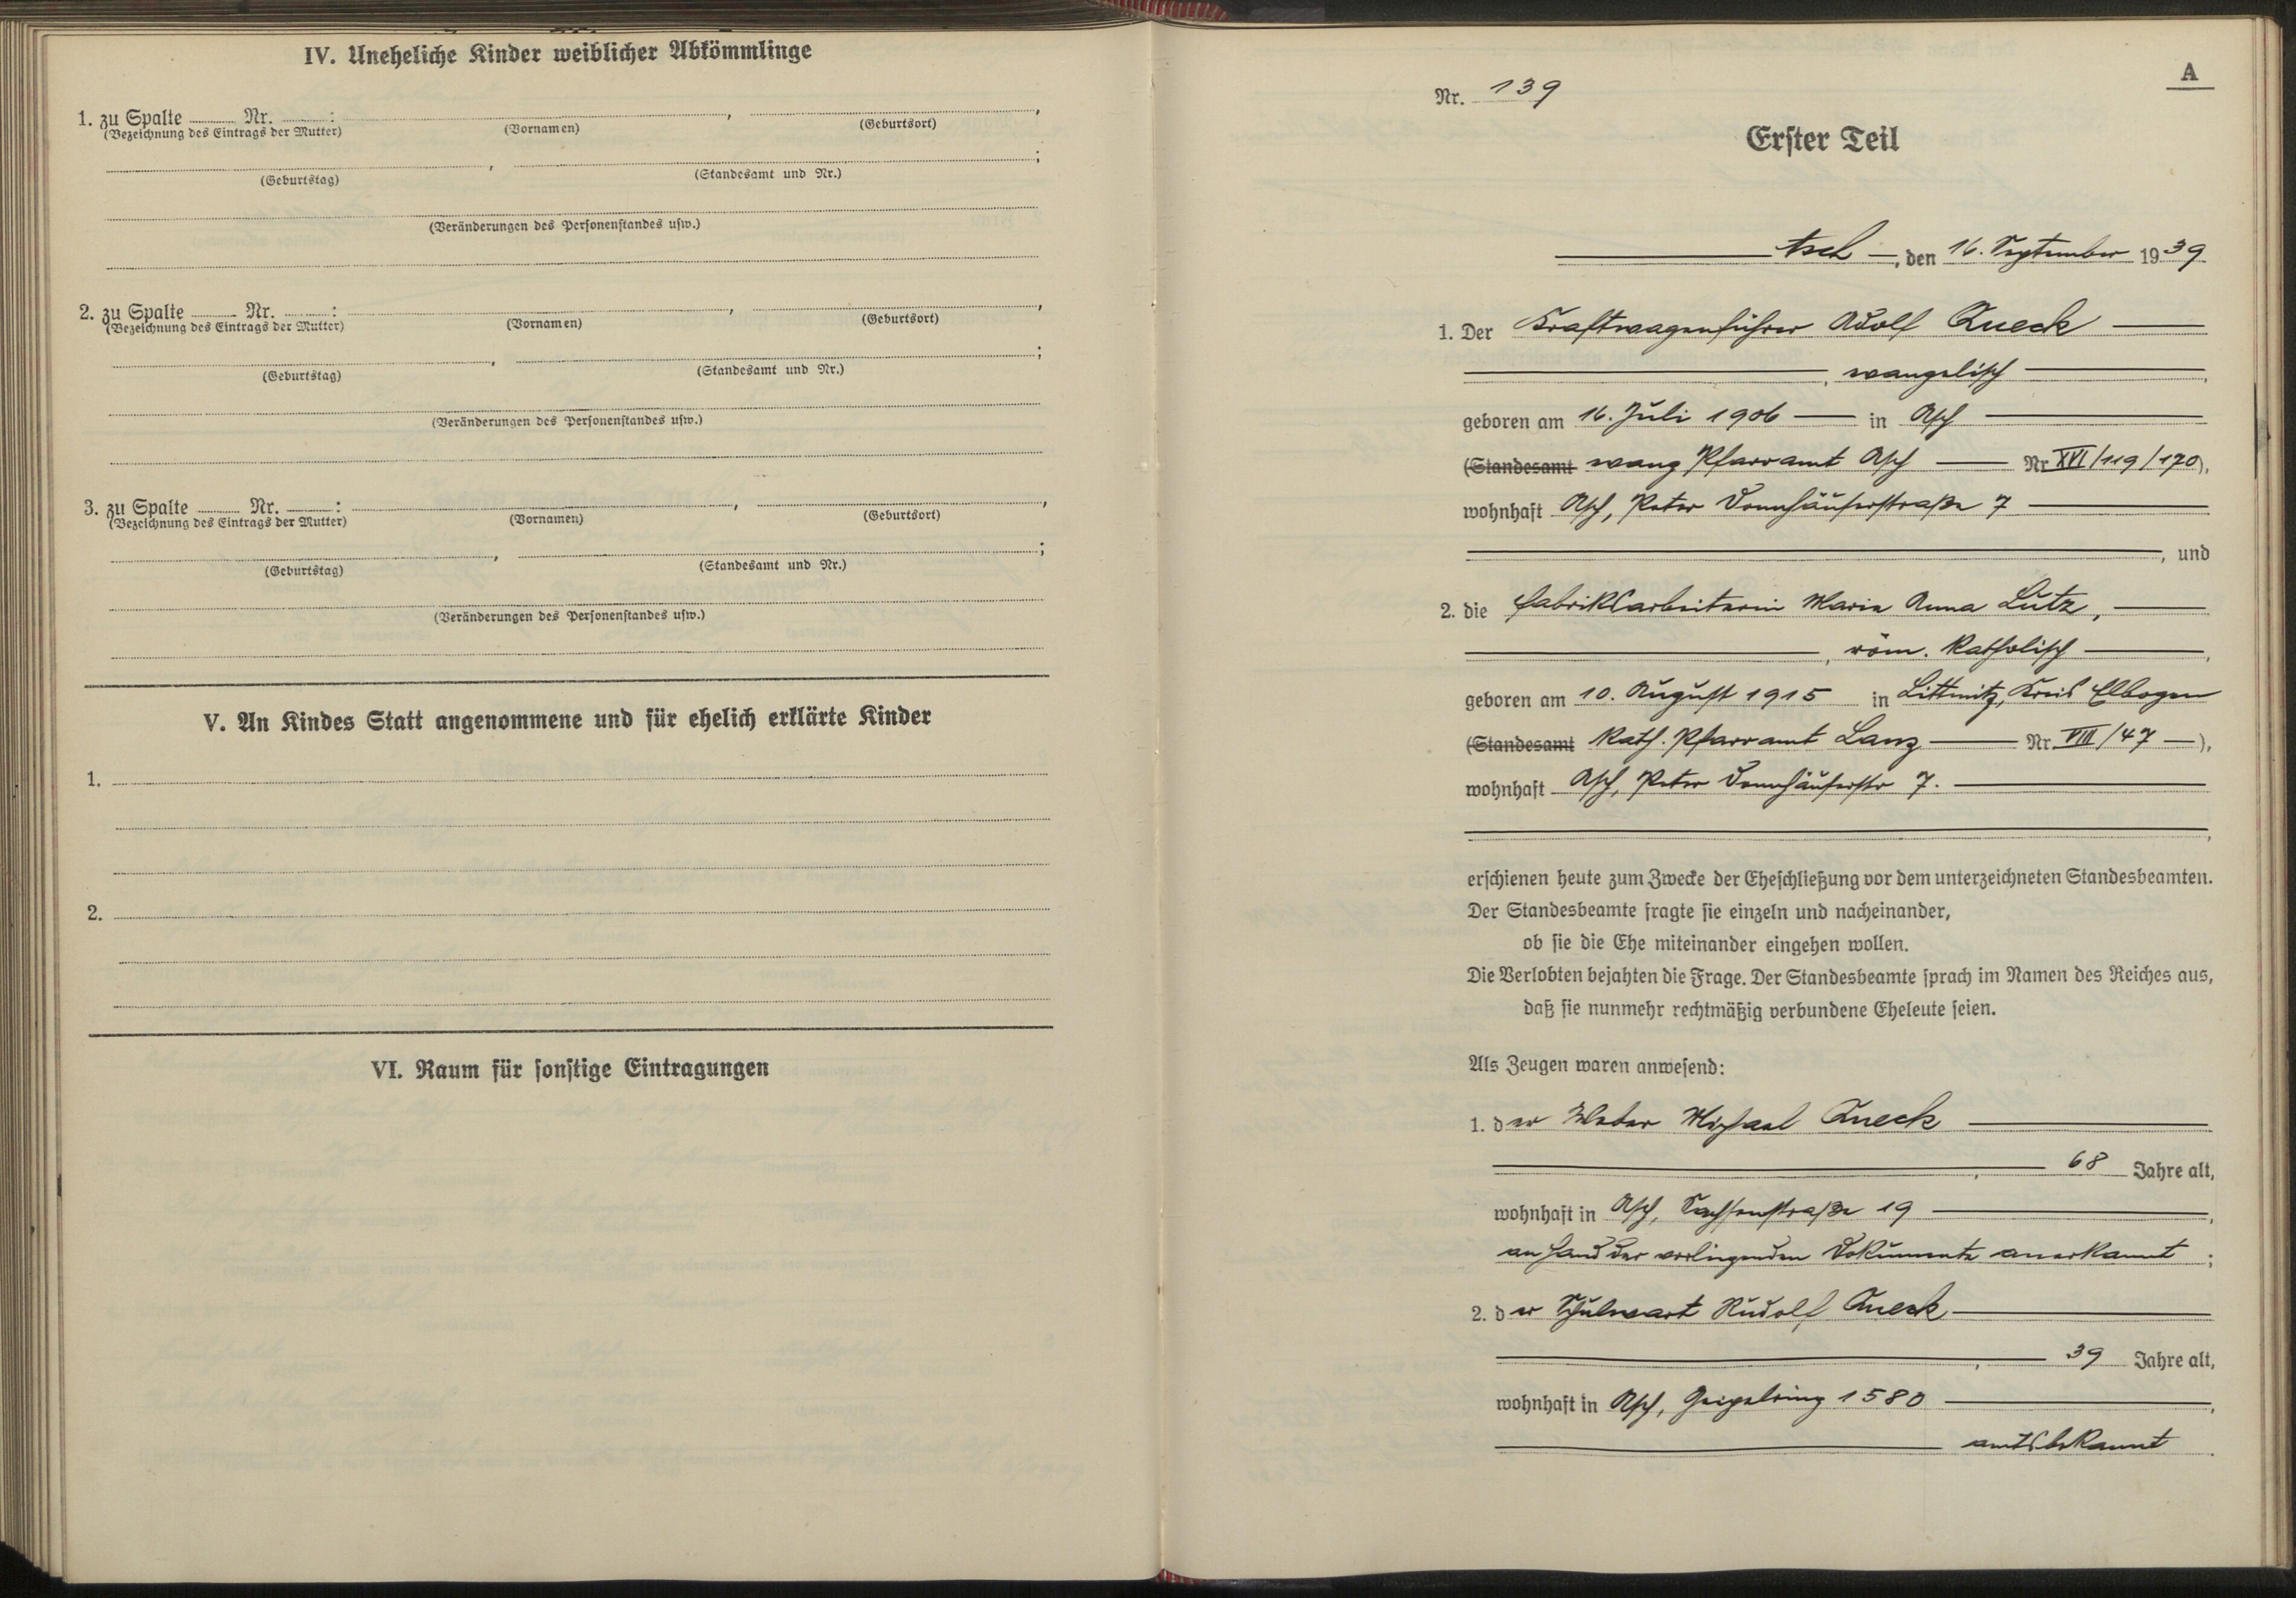 IV. Uneheliche Kinder weiblicher Abkömmlinge
1. zu Spalte ........ Nr. ........: ........, ........,
(Bezeichnung des Eintrags der Mutter) (Vornamen) (Geburtsort)
........, ........;
(Geburtstag) (Standesamt und Nr.)
(Veränderungen des Personenstandes usw.)
2. zu Spalte ........ Nr. ........: ........, ........,
(Bezeichnung des Eintrags der Mutter) (Vornamen) (Geburtsort)
........, ........;
(Geburtstag) (Standesamt und Nr.)
(Veränderungen des Personenstandes usw.)
3. zu Spalte ........ Nr. ........: ........, ........,
(Bezeichnung des Eintrags der Mutter) (Vornamen) (Geburtsort)
........, ........;
(Geburtstag) (Standesamt und Nr.)
(Veränderungen des Personenstandes usw.)
V. An Kindes Statt angenommene und für ehelich erklärte Kinder
1.
2.
VI. Raum für sonstige Eintragungen
A
Nr. 139
Erster Teil
Asch, den 16. September 1939
1. Der Kraftwagenführer Adolf Queck
, evangelisch,
geboren am 16. Juli 1906 in Asch
(Standesamt evang Pfarramt Asch Nr XVI/119/170),
wohnhaft Asch, Peter Donnhäuserstraße 7
, und
2. die Fabriksarbeiterin Maria Anna Lutz,
, röm. katholisch,
geboren am 10. August 1915 in Littmitz, Kreis Elbogen
(Standesamt Kath. Pfarramt Lanz Nr VIII/47),
wohnhaft Asch, Peter Donnhäuserstr 7.
erschienen heute zum Zwecke der Eheschließung vor dem unterzeichneten Standesbeamten.
Der Standesbeamte fragte sie einzeln und nacheinander,
ob sie die Ehe miteinander eingehen wollen.
Die Verlobten bejahten die Frage. Der Standesbeamte sprach im Namen des Reiches aus,
daß sie nunmehr rechtmäßig verbundene Eheleute seien.
Als Zeugen waren anwesend:
1. der Weber Michael Queck
, 68 Jahre alt,
wohnhaft in Asch, Sachsenstraße 19,
an Hand der vorliegenden Dokumente anerkannt;
2. der Schulwart Rudolf Queck
, 39 Jahre alt,
wohnhaft in Asch, Geipelring 1580,
amtsbekannt.